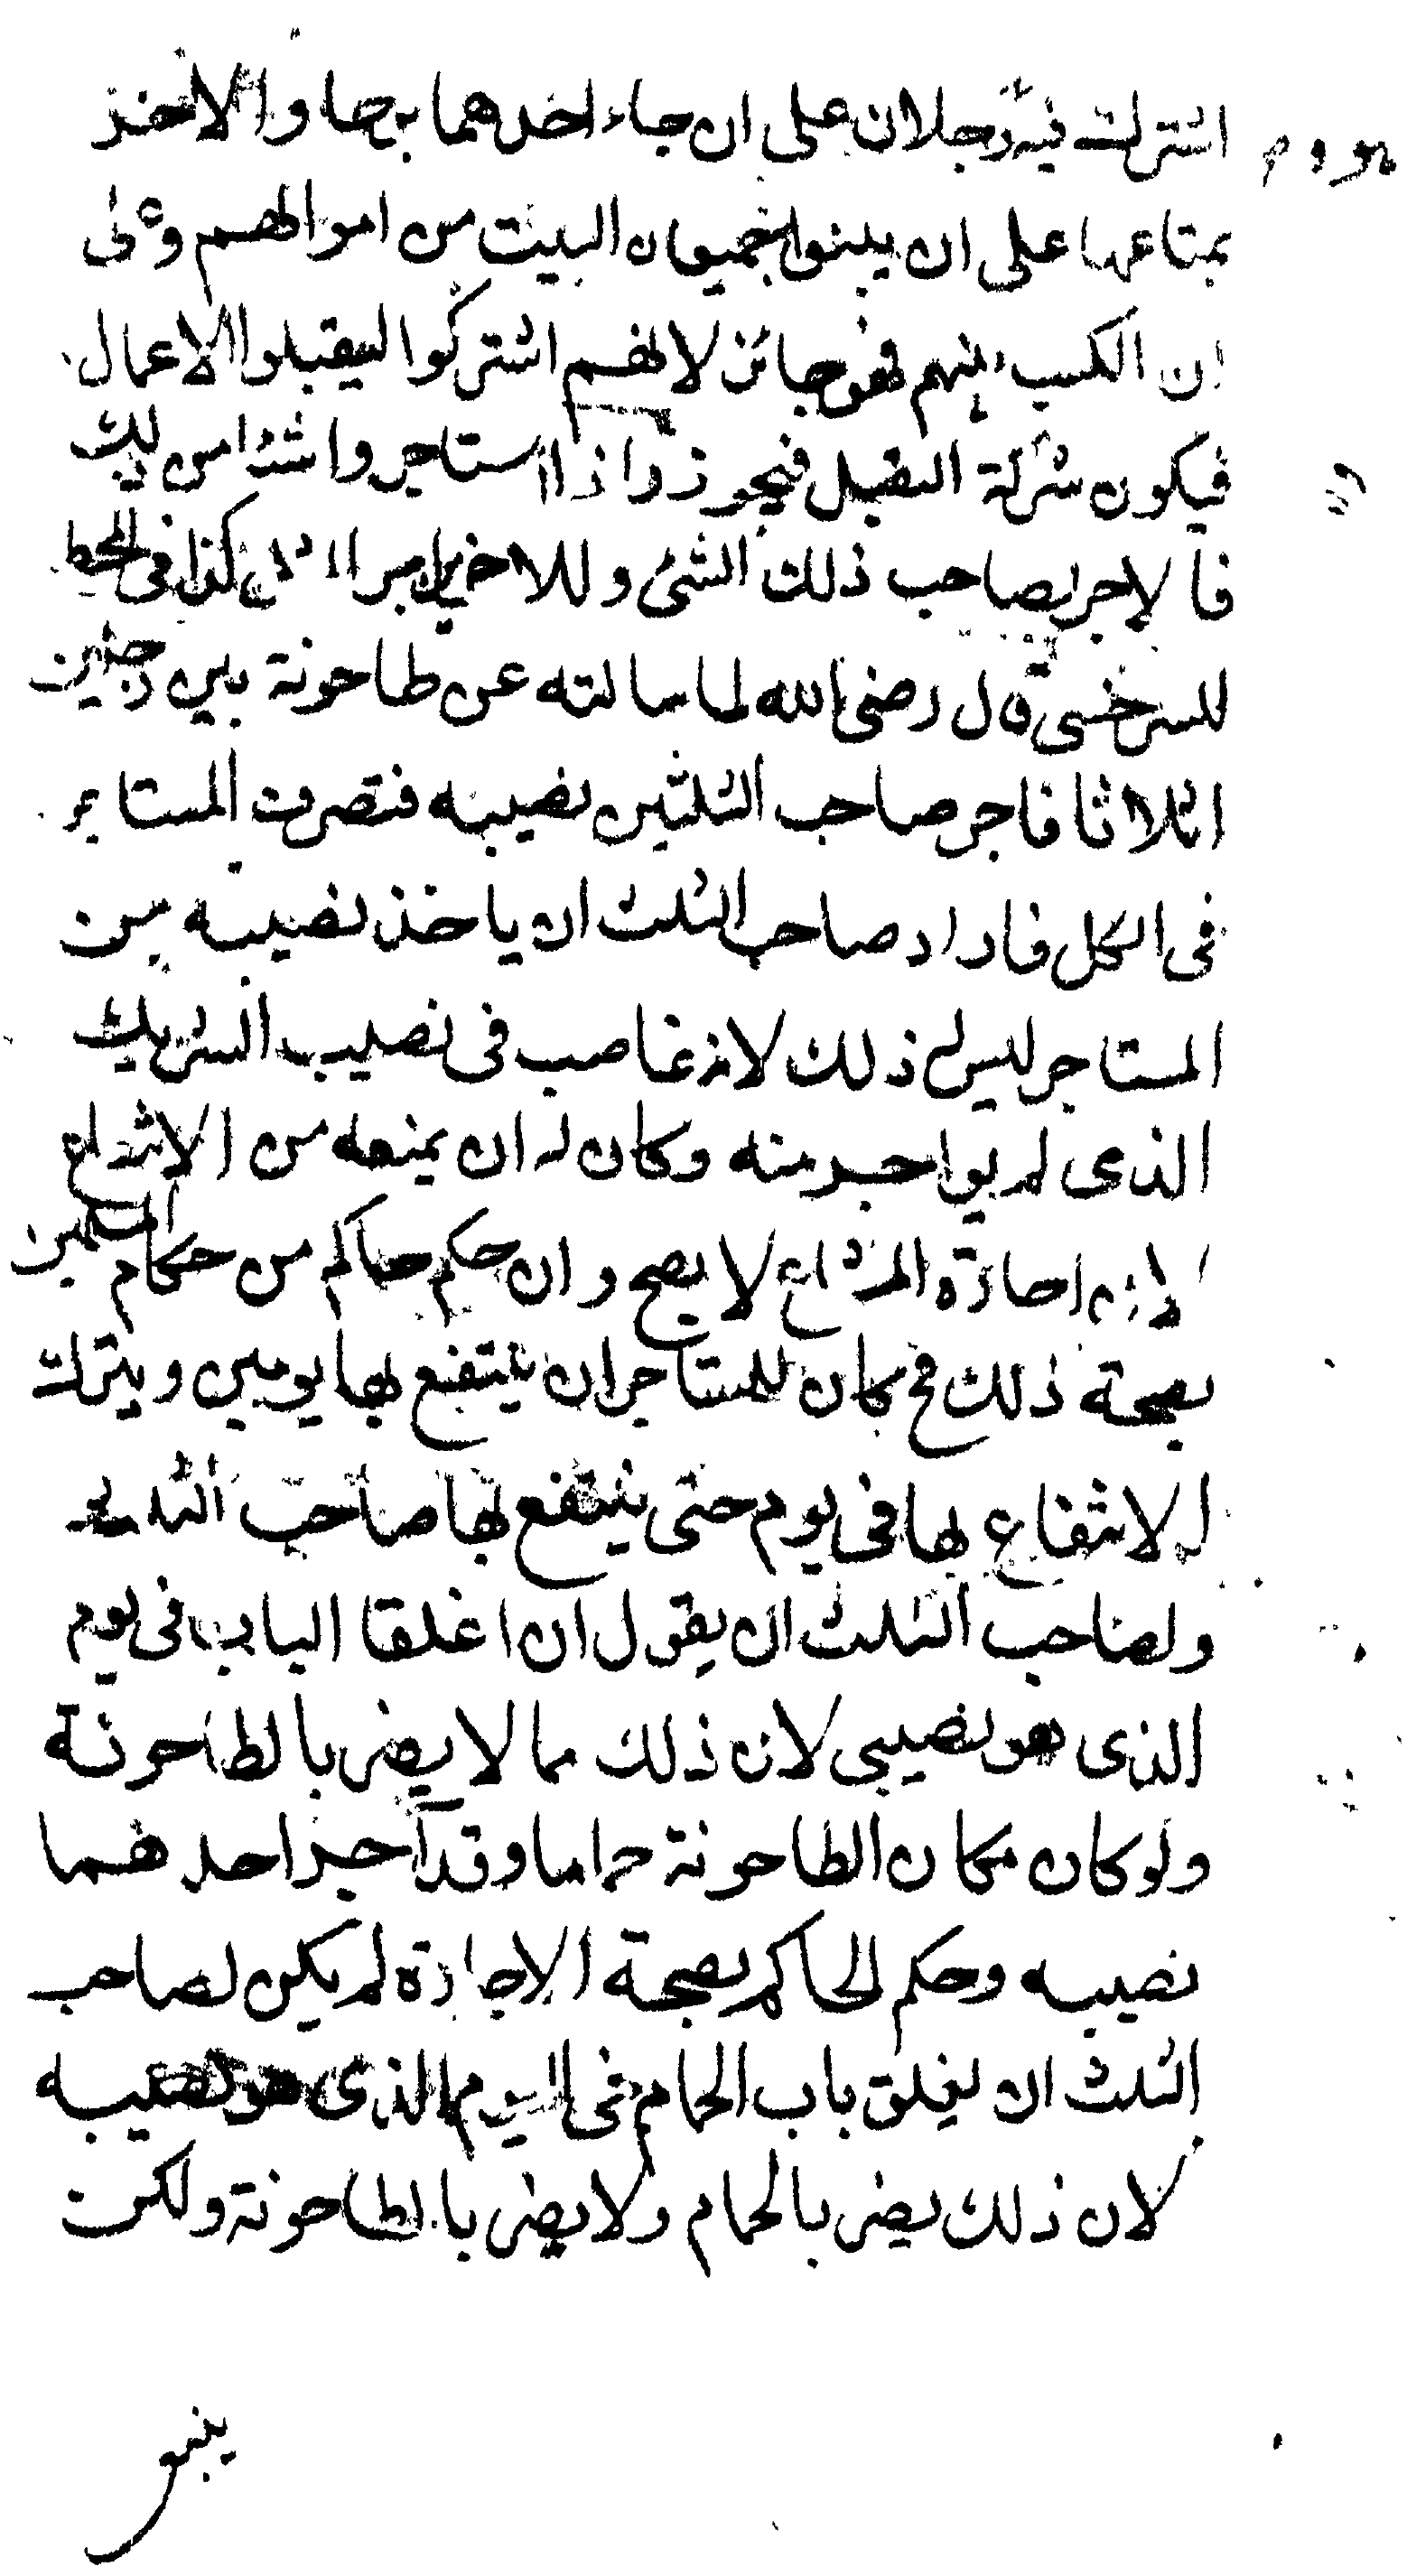 اشترك فيه رجلان على ان جاء احدهما برحا والاخر
بمتاعها على ان يبنوا البيت من اموالهم وعلى
ان الكسب بينهم فهو جائز لانهم اشتركوا ليقبلوا الاعمال
فيكون شركة التقبل فيجوز واذا استاجروا شئا من ذلك
فالاجر لصاحب ذلك الشئ وللاخرين اجر كذا في المحيط
للسرخسي قال رضي الله لما سالته عن طاحونة بين رجلين
اثلاثا فاجر صاحب الثلثين نصيبه فتصرف المستاجر
في الكل فاراد صاحب الثلث ان ياخذ نصيبه من
المستاجر ليس له ذلك لانه غاصب في نصيب الشريك
الذي لم يواجر منه وكان له ان يمنعه من الانتفاع
لان اجارة المشاع لا يصح وان حكم حاكم من حكام المسلمين
بصحة ذلك فح كان للمستاجر ان ينتفع بها يومين ويترك
له الانتفاع بها في يوم حتى ينتفع بها صاحب الثلث
ولصاحب الثلث ان يقول ان اغلقا الباب في يوم
الذي هو نصيبي لان ذلك مما لا يضر بالطاحونة
ولو كان مكان الطاحونة حماما وقد آجر احدهما
نصيبه وحكم الحاكم بصحة الاجارة لم يكن لصاحب
الثلث ان يغلق باب الحمام في اليوم الذي هو نصيبه
لان ذلك يضر بالحمام ولا يضر بالطاحونة ولكن